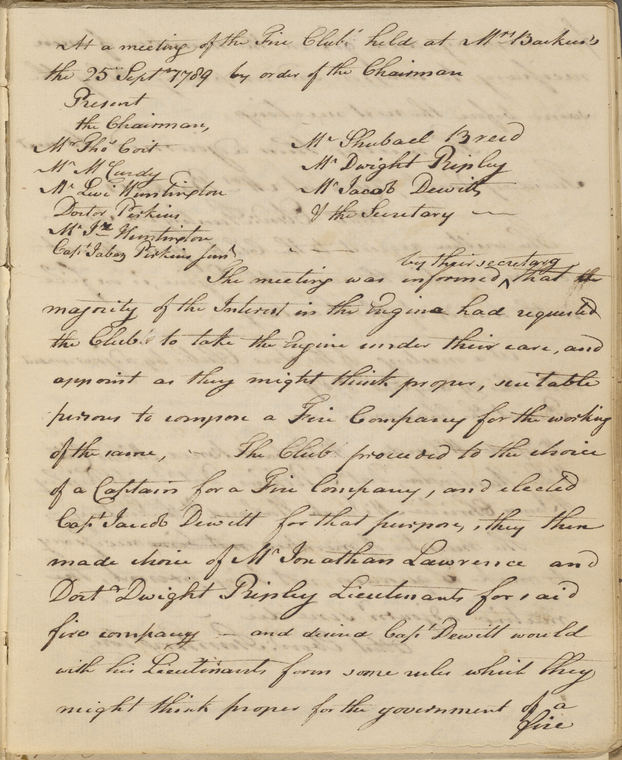 At a meeting of the Fire Club held at Mrs Backus's
the 25 Sept 1789 by order of the Chairman
Present
the Chairman,
Mr Thos Coit
Mr McCurdy
Mr Levi Huntington
Doctor Perkins
Mr Jr Huntington
Capt Jabez Perkins Junr
Mr Shubael Breed
Mr Dwight Ripley
Mr Jacob Dewitt
& the Secretary
by their secretary
The meeting was informed ^ that the
majority of the Interest in the Engine had requested
the Club to take the Engine under their care, and
appoint as they might think proper, suitable
persons to compose a Fire Company for the working
of the same, - The Club proceeded to the choice
of a Captain for a Fire Company, and elected
Capt Jacob Dewitt for that purpose, they then
made choice of Mr Jonathan Lawrence and
Doctr Dwight Ripley Lieutenants for said
fire company - and desired Capt Dewitt would
with his Lieutenants form some rules which they
might think proper for the government of a
fire